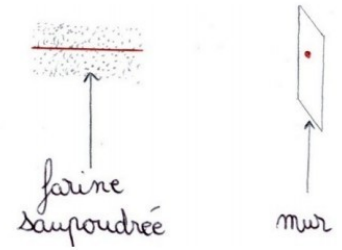 farine
saupoudrée
mur